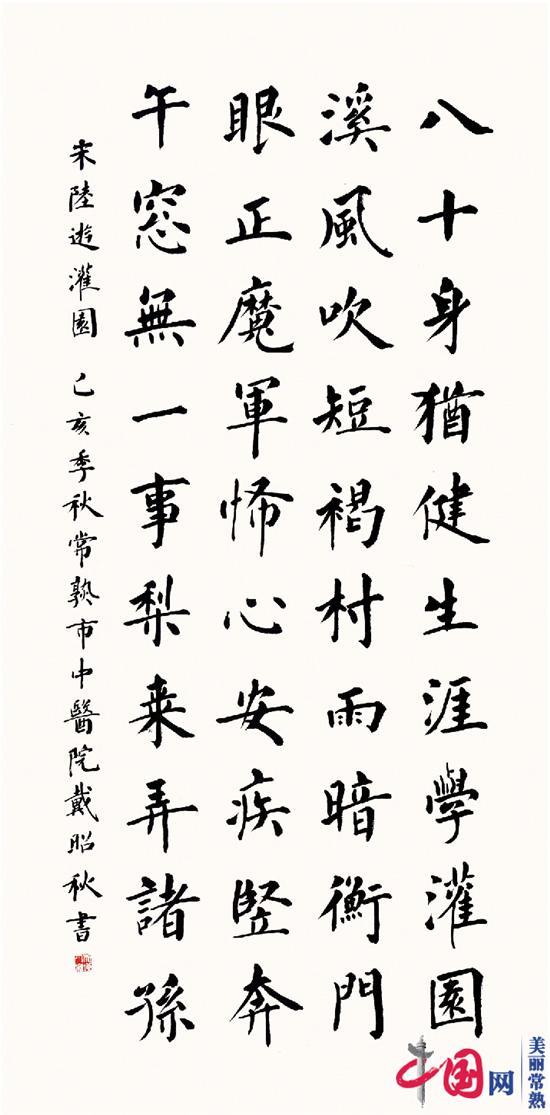 八十身猶健生涯學灌園
溪風吹短褐村雨暗衡門
眼正魔軍怖心安疾竪奔
午窓無一事梨来弄諸孫
宋陸遊灌園 己亥季秋常熟市中醫院戴昭秋書
中国网
美丽常熟